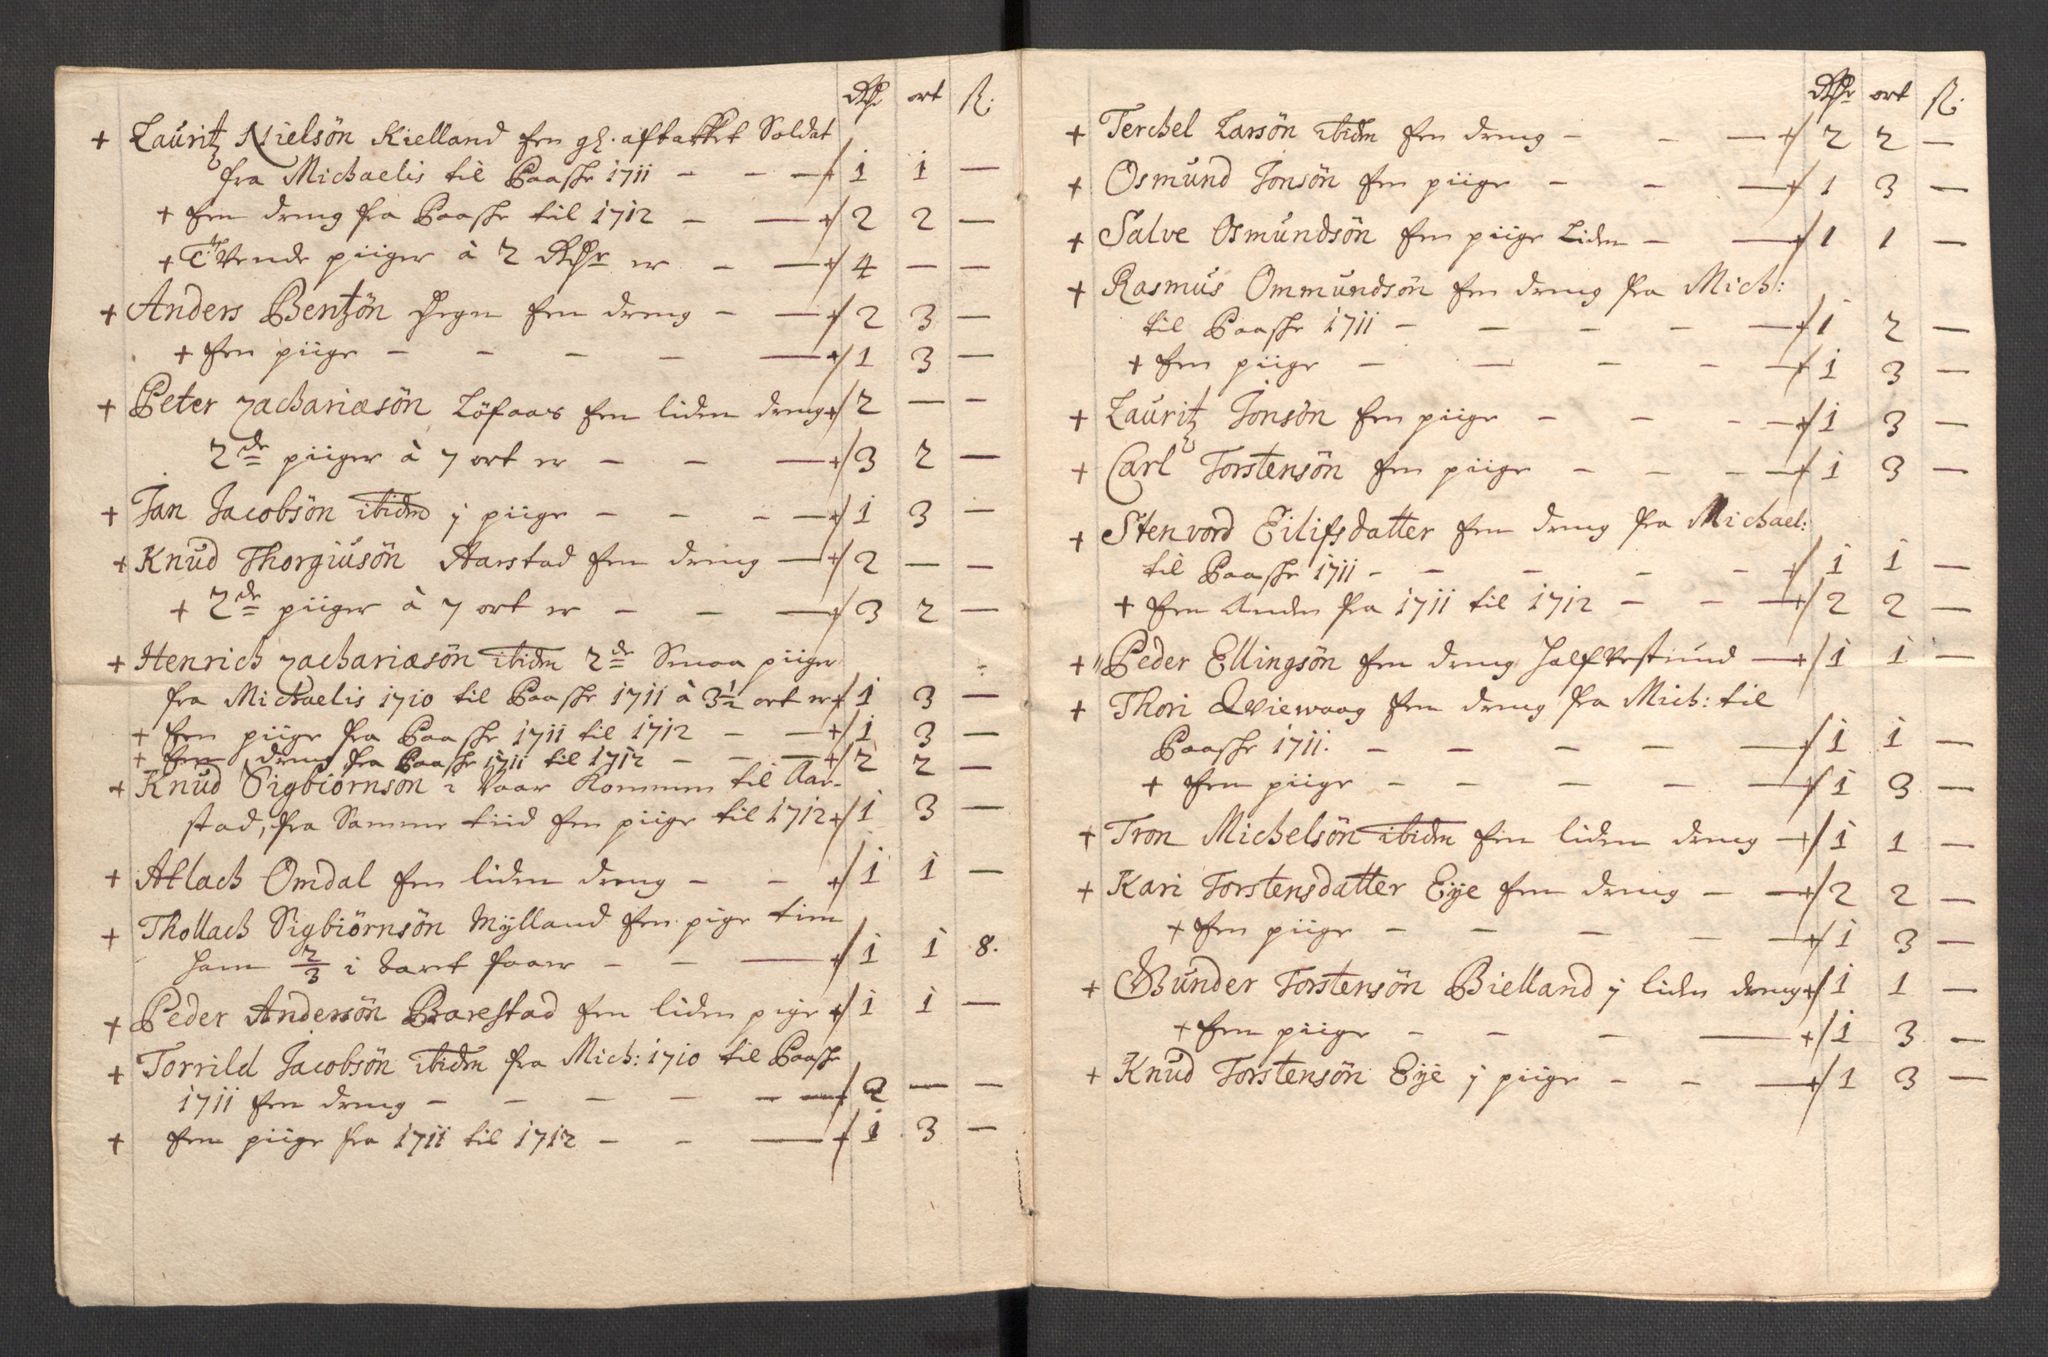 Rdr ort ß:
+ Lauritz Nielsön Kielland Een gl. aftakket Soldat
fra Michaelis til Paaske 1711 - - - 1 1 -
+ Een dreng fra Paaske til 1712 - - 2 2 -
+ Tvende piiger à 2 Rdr er - - 4 - -
+ Anders Bentzön Hegn Een dreng - - 2 3 -
+ Een piige - - - - - 1 3 -
+ Peter Zachariæsön Löfaas Een liden dreng 2 - -
2de piiger à 7 ort er - - - 3 2 -
+ Jan Jacobsön ibidm j piige - - - - 1 3 -
+ Knud Thorgiusön Aarstad Een dreng - 2 - -
+ 2de piiger à 7 ort er - - - 3 2 -
+ Henrich Zachariæsön ibidm 2de Smaa piiger
fra Michaelis 1710 til Paaske 1711 à 3½ ort er 1 3 -
+ Een piige fra Paaske 1711 til 1712 - - 1 3 -
+ Een dreng fra Paaske 1711 til 1712 - - - 2 2 -
+ Knud Sigbiörnsön i Vaar Kommen til Aar-
stad, fra Samme tiid Een piige til 1712 1 3 -
+ Atlach Omdal Een liden dreng - - 1 1 -
+ Thollach Sigbiörnsön Mÿlland Een pige tien
ham 2/3 i Aaret faaer - - - 1 1 8.
+ Peder Andersön Barestad Een liden pige 1 1 -
+ Torrild Jacobsön ibidm fra Mich: 1710 til Paaske
1711 Een dreng - - - - - - 2 - -
+ Een piige fra 1711 til 1712 - - - 1 3 -
Rdr ort ß:
+ Terchel Larsön ibidm Een dreng - - - 2 2 -
+ Osmund Jonsön Een piige - - - 1 3 -
+ Salve Osmundsön Een piige Liden - - 1 1 -
+ Rasmus Ommundsön Een dreng fra Mich:
til Paaske 1711 - - - - - 1 2 -
+ Een piige - - - - - 1 3 -
+ Lauritz Jonsön Een piige - - - - 1 3 -
+ Carl Torstensön Een piige - - - - 1 3 -
+ Stenvord Eilifsdatter Een dreng fra Michael:
til Paaske 1711 - - - - - 1 1 -
+ Een Anden fra 1711 til 1712 - - - 2 2 -
+ Peder Ellingsön Een dreng Halfvextund - 1 1 -
+ Thori Qviewaag Een dreng fra Mich: til
Paaske 1711. - - - - - - 1 1 -
+ Een piige - - - - - 1 3 -
+ Tron Michelsön ibidm Een liden dreng - 1 1 -
+ Kari Torstensdatter Eÿe Een dreng - - 2 2 -
+ Een piige - - - - - 1 3 -
+ Gunder Torstensön Bielland j liden dreng 1 1 -
+ Een piige - - - - 1 3 -
+ Knud Torstensön Eÿe j piige - - - 1 3 -